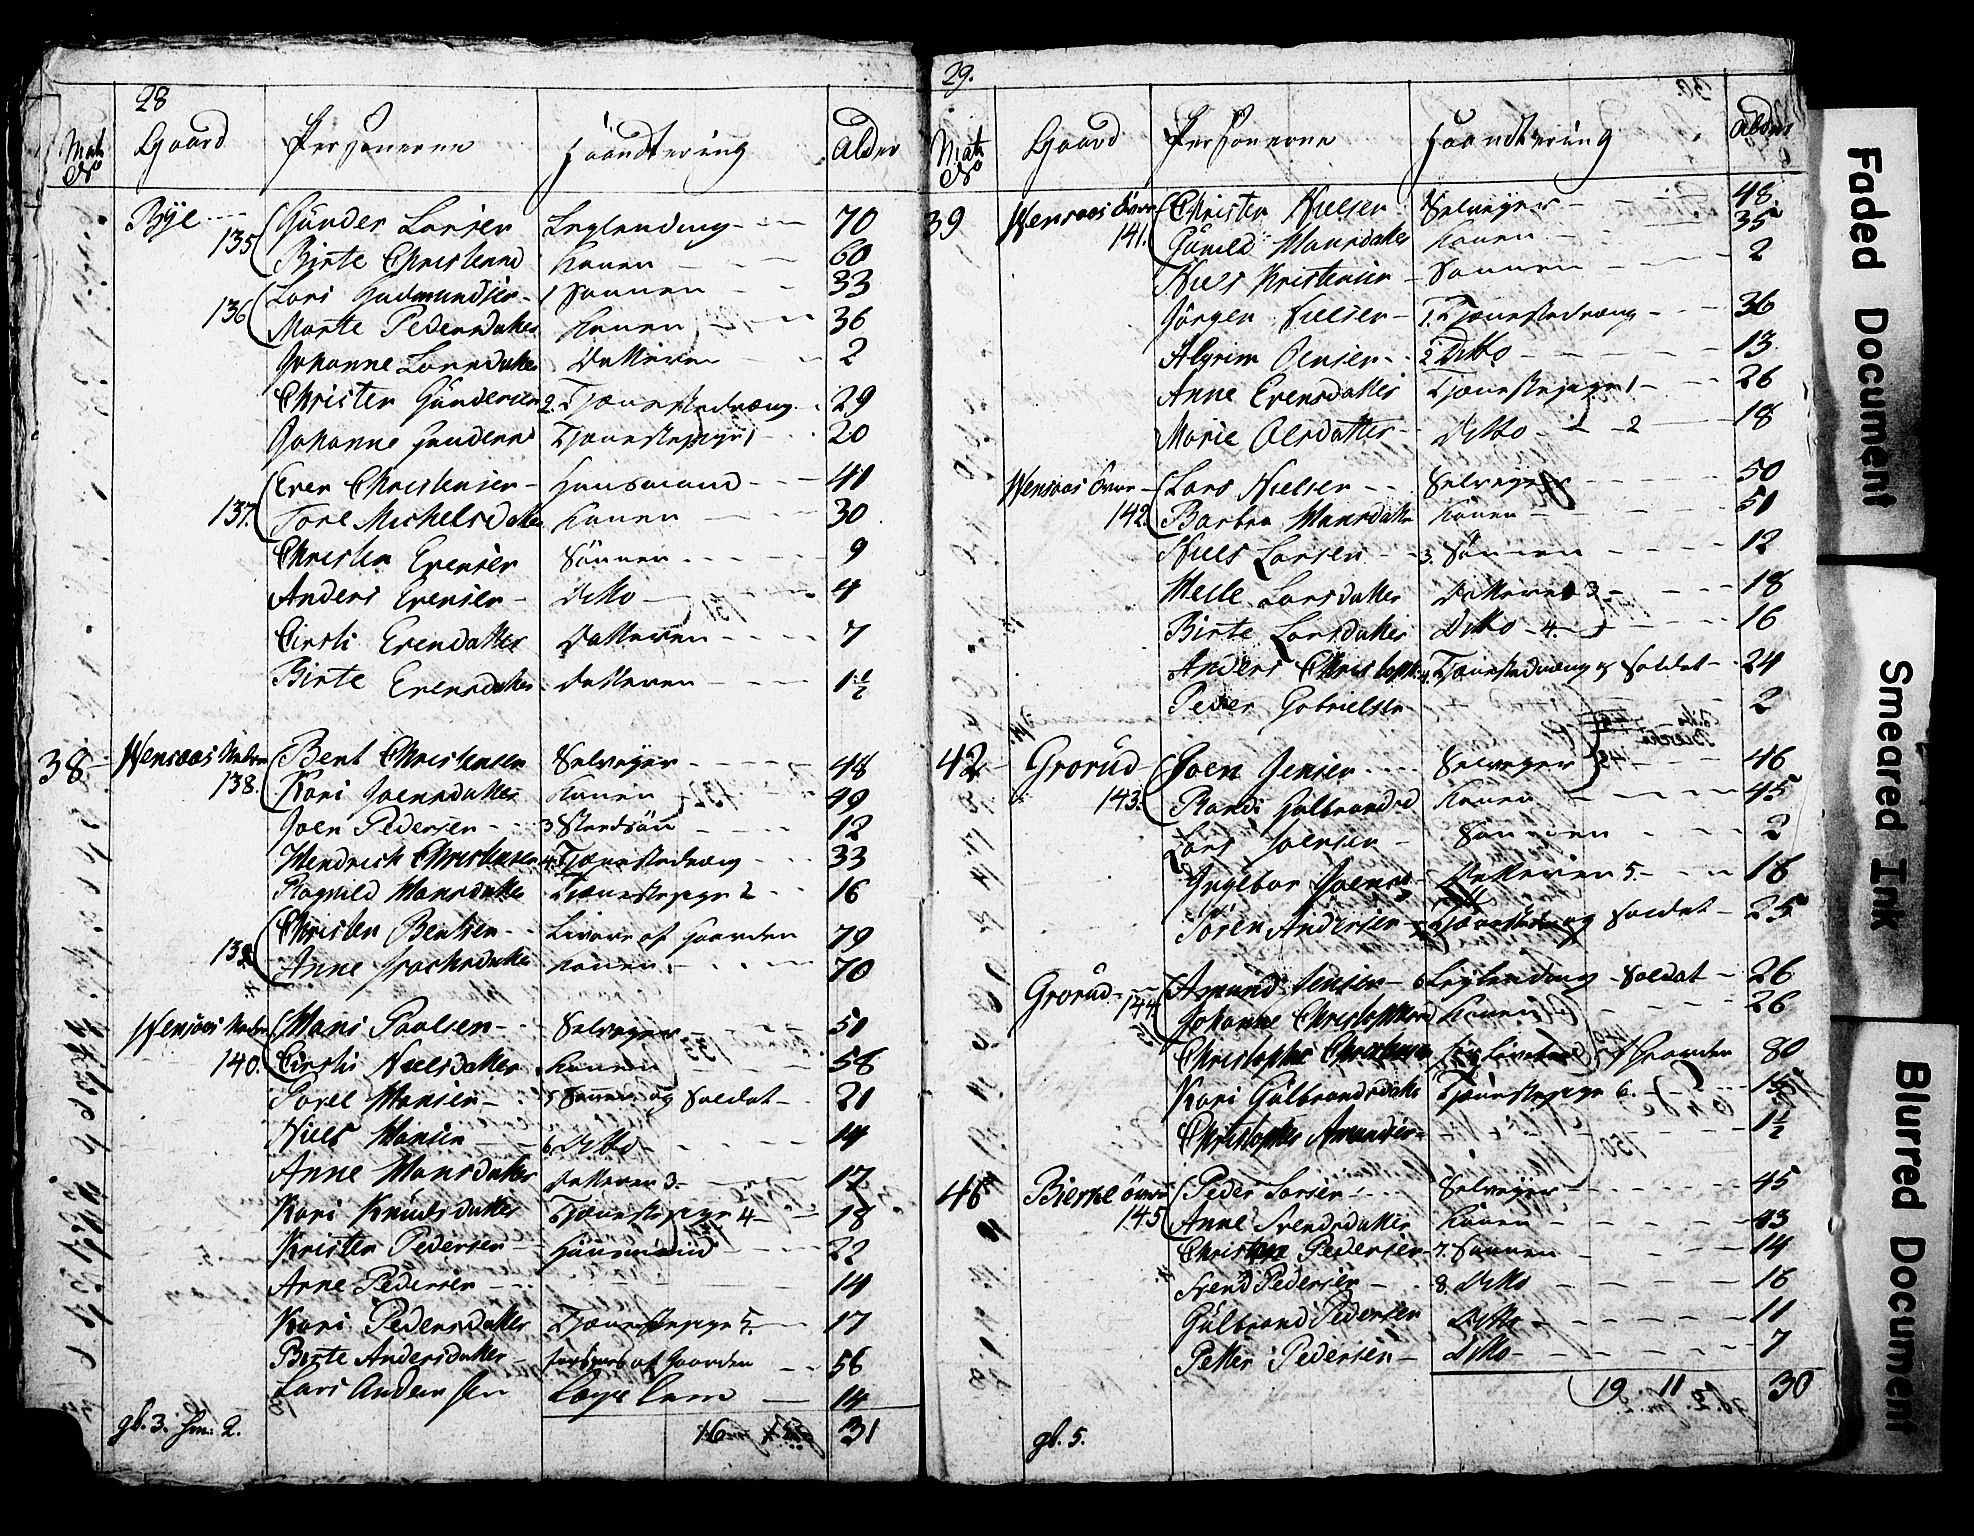 28
Mat No Gaard Personerne Haandtering Alder
Bye Gunder Larsen Leylending 70
135 Birte Christensd Konen 60
Lars Gudmundsen 1 Sønnen 33
136 Marte Pedersdatter Konen 36
Johanne Larsdatter Datteren 2
Christen Gundersen 2. Tjenestedreng 29
Johanne Gundersd Tjenestepige 1 20
Even Christensen Huusmand 41
137. Tore Michelsdatter Konen 30
Christen Evensen Sønnen 9
Anders Evensen Ditto 4
Cirsti Evensdatter Datteren 7
Birte Evensdatter Datteren 1 1/2
38 Wensaas Nedre Bent Christensen Selveyer 48
138. Kari Joensdatter Konen 49
Joen Pedersen 3 Stedsøn 12
Hendrich Christensen 4. Tjenestedreng 33
Ragnild Hansdatter Tjenestepige 2 16
Christen Bentsen Livøre af Gaarden 79
139 Anne Jrachsdatter Konen 70
Wensaas Nedre Hans Paulsen Selveyer 51
140. Cirsti Nielsdatter Konen 58
Povel Hansen 5 Sønnen og Soldat 21
Niels Hansen 6 Ditto 14
Anne Hansdatter Datteren 3. 17
Kari Knudsdatter Tjenestepige 4 18
Kristen Pedersen Huusmand 22
Arne Pedersen 14
Kari Pedersdatter Tjenestepige 5. 17
Berte Andersdatter af Gaarden 56
Lars Andersen Lægs Lem 14
gb. 3. Hm. 2. 16 31
29.
Mat No Gaard Personerne Haandtering Alder
39 Wensaas Øvre Christen Nielsen Selveyer 48
141. Gunild Hansdatter Konen 35
Niels Kristensen Sønnen 2
Jörgen Nielsen 1. Tjenestedreng 36
Asgrim Olensen 2 Ditto 13
Anne Evensdatter Tjenestepige 1 26
Marie Olsdatter Ditto 2 18
Wensaas Øvre Lars Nielsen Selveyer 50
142. Barbra Hansdatter Konen 51
Niels Larsen 3. Sønnen 12
Helle Larsdatter Datteren 3 18
Birte Larsdatter Ditto 4. 16
Anders Christoph 4. Tjenestedreng og Soldat 24
Peder Gabrielsen 2
42 Grorud Joen Jensen Selveyer 46
143. Randi Gulbrandsd Konen 45
Lars Joensen Sønnen 2
Ingebor Joensd Datteren 5. 16
Søren Andersen Tjenestedreng og Soldat 25
Grorud 144 Amund Jensen 6 Leylending Soldat 26
Johanne Christophersd Konen 26
Christopher Christensen Livøre af Gaarden 80
Kari Gulbrandsdatter Tjenestepige 6. 15
Christopher Amundsen 1 1/2
46 Bierke Øvre Peder Larsen Selveyer 45
145 Anne Svendsdatter Konen 43
Christen Pedersen 7. Sønnen 14
Svend Pedersen 8. Ditto 16
Gulbrand Pedersen Ditto 11
Petter Pedersen Ditto 7
19 11 30
gb. 5.
Faded Document
Smeared Ink
Blurred Document